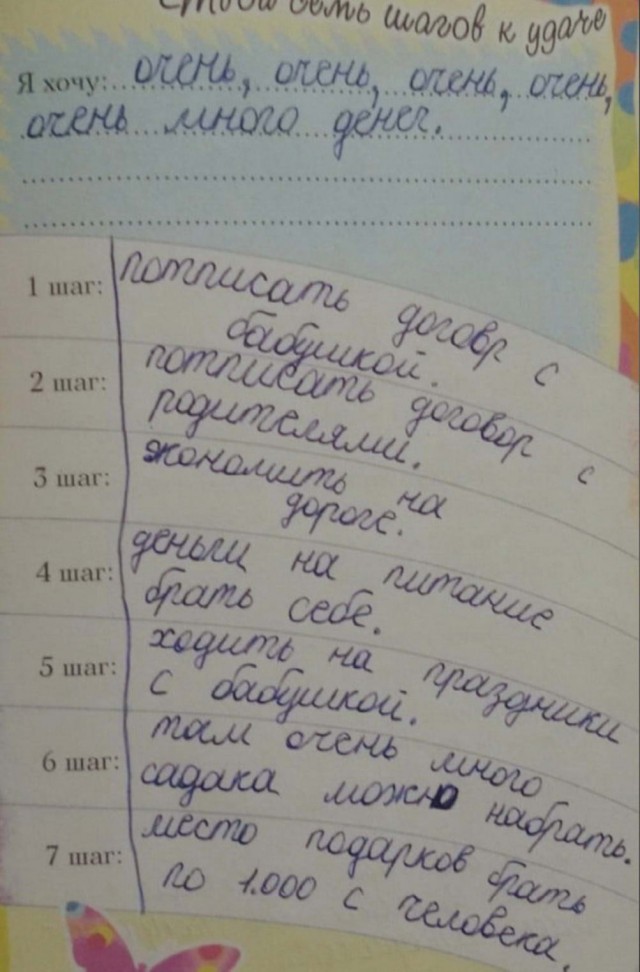 Твои семь шагов к удаче
Я хочу: очень, очень, очень, очень,
очень много денег.
1 шаг: потписать договр с
бабушкой.
2 шаг: потписать договор с
родителями.
3 шаг: экономить на
дороге.
4 шаг: деньги на питание
брать себе.
5 шаг: ходить на праздники
с бабушкой.
6 шаг: там очень много
садака можно набрать.
7 шаг: место подарков брать
по 1.000 с человека.